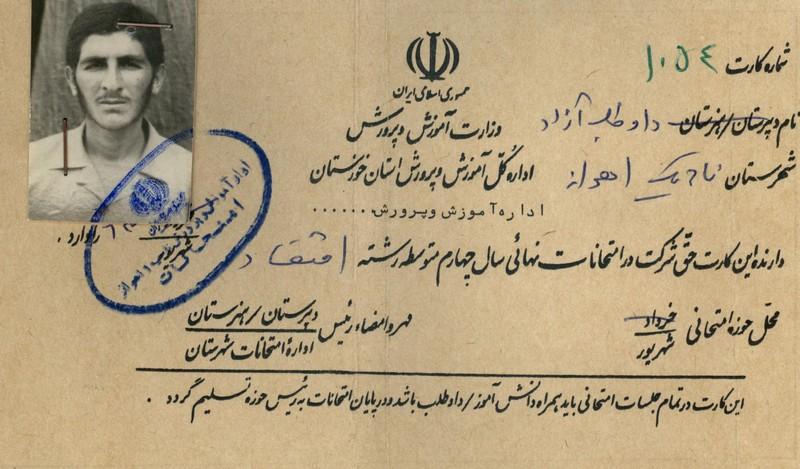 شماره کارت ۱۰۵۴
جمهوری اسلامی ایران
وزارت آموزش و پرورش
نام دبیرستان/هنرستان داوطلب آزاد
اداره کل آموزش و پرورش استان خوزستان
شهرستان ناحیه یک اهواز
اداره آموزش و پرورش .......
دارنده این کارت حق شرکت در امتحانات نهائی سال چهارم متوسطه رشته اقتصاد را دارد .
محل حوزه امتحانی خرداد شهریور
مهر و امضاء رئیس دبیرستان/هنرستان
اداره امتحانات شهرستان
این کارت در تمام جلسات امتحانی باید همراه دانش آموز/داوطلب باشد و در پایان امتحانات به رئیس حوزه تسلیم گردد .